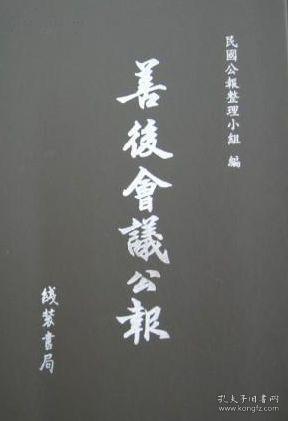 民國公報整理小組 編
善後會議公報
綫裝書局
孔夫子旧书网
www.kongfz.com